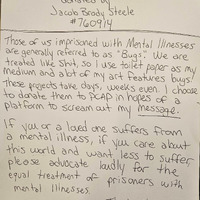 donated by
Jacob Brady Steele
#760914
Those of us imprisoned with Mental Illnesses
are generally referred to as "Bugs". We are
treated like Shit, so I use toilet paper as my
medium and a bt of my art features bugs!
These projects take days, weeks even. I choose
to donate them to PCAP in hopes of a
platform to scream out my message.
If you or a loved one suffers from
a mental illness, if you care about
this world and want less to suffer
please advocate loudly for the
equal treatment of prisoners with
mental illnesses.